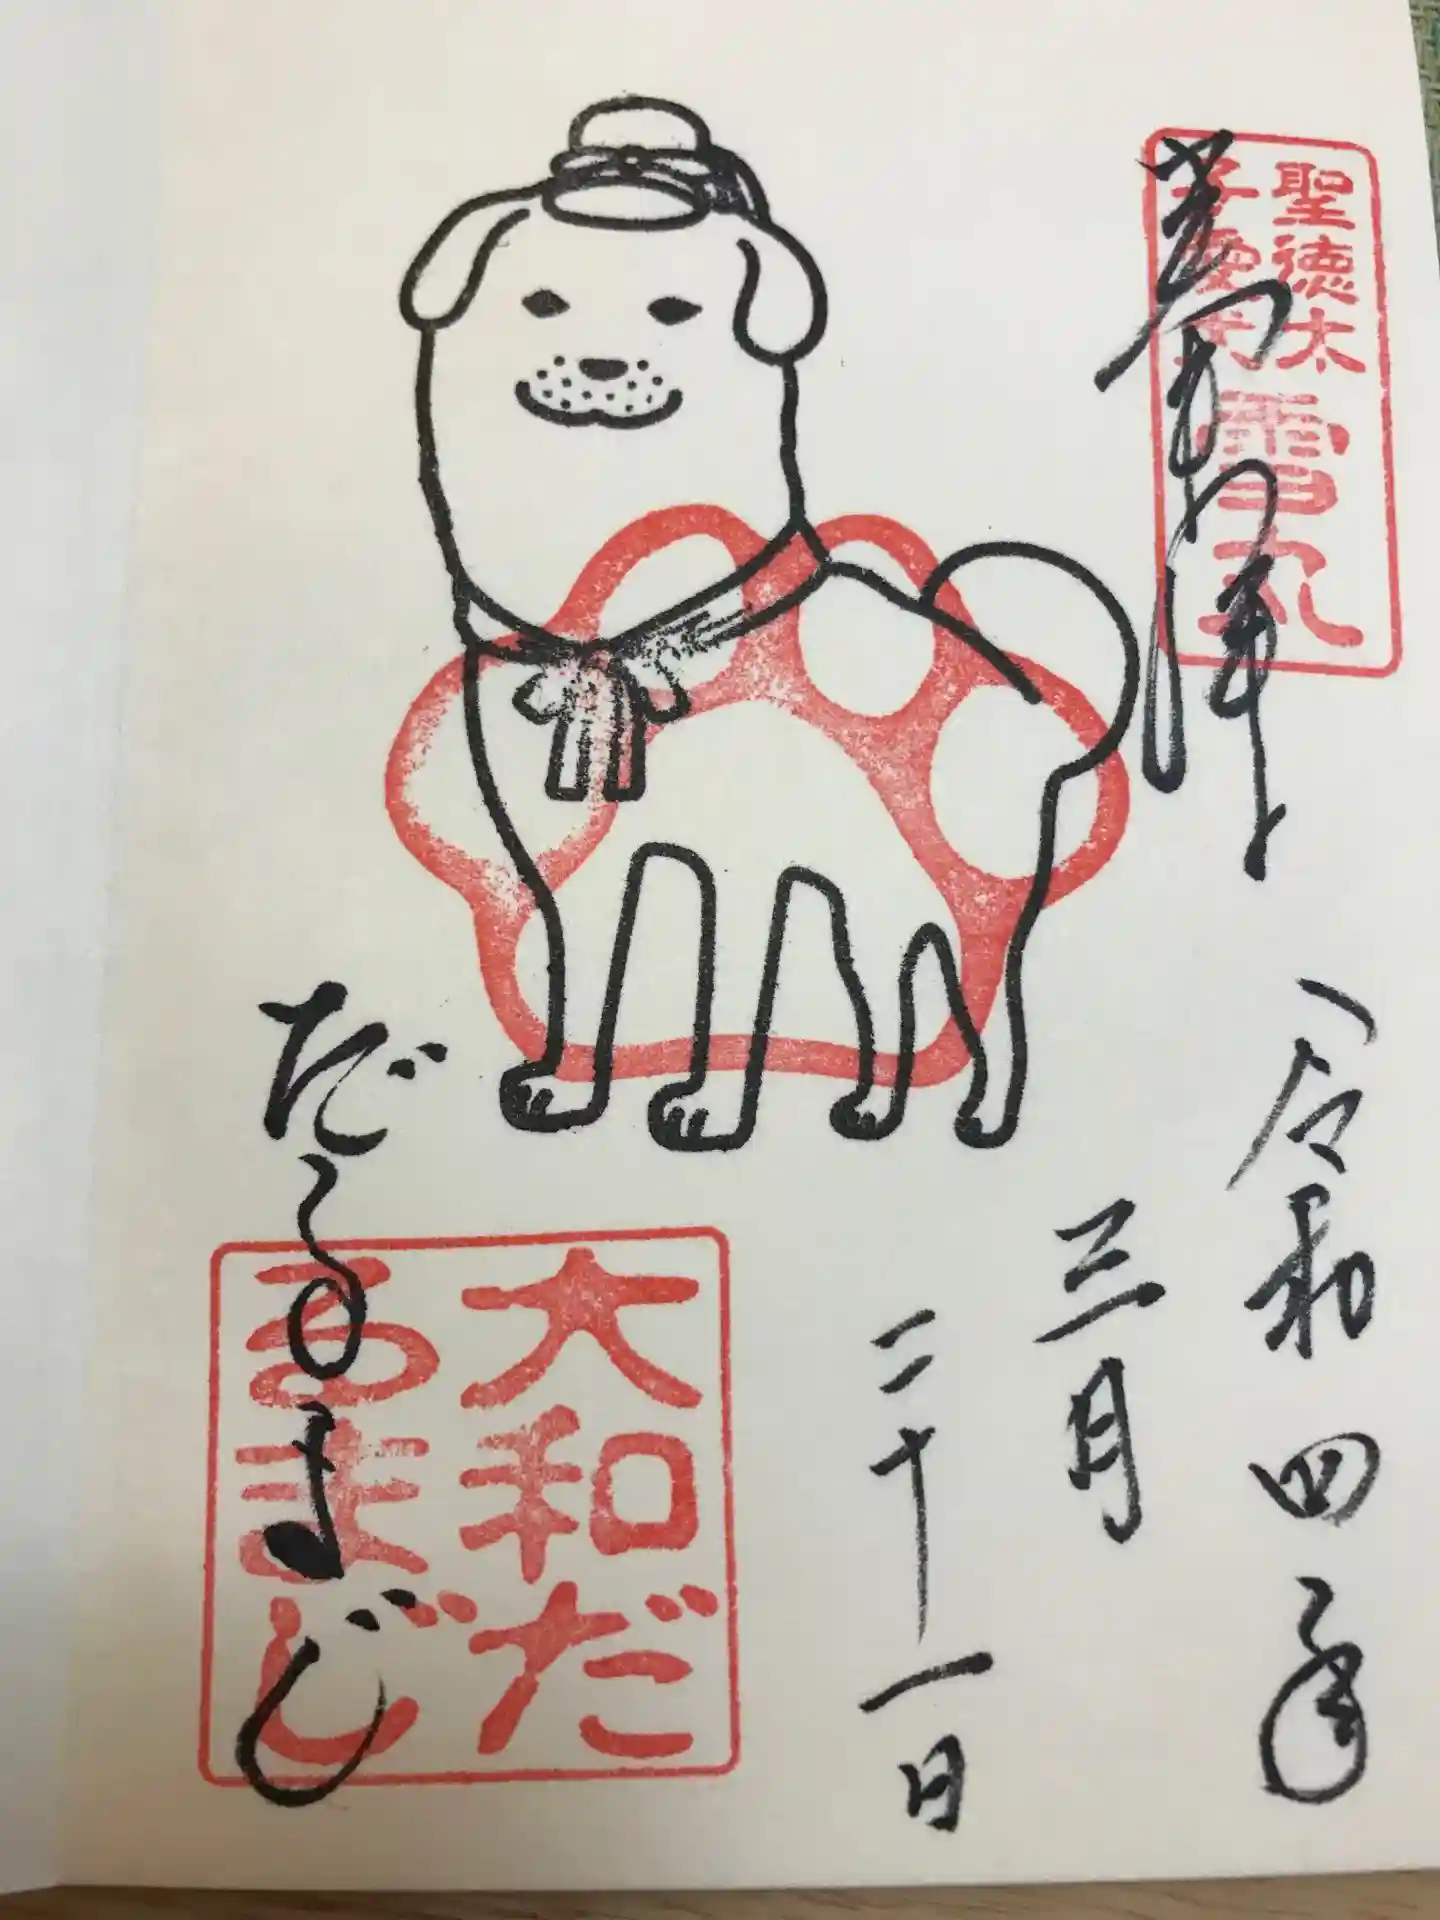 聖徳太
子愛犬
雪丸
令和四年
三月
二十一日
だるまじ
大和だ
るまじ